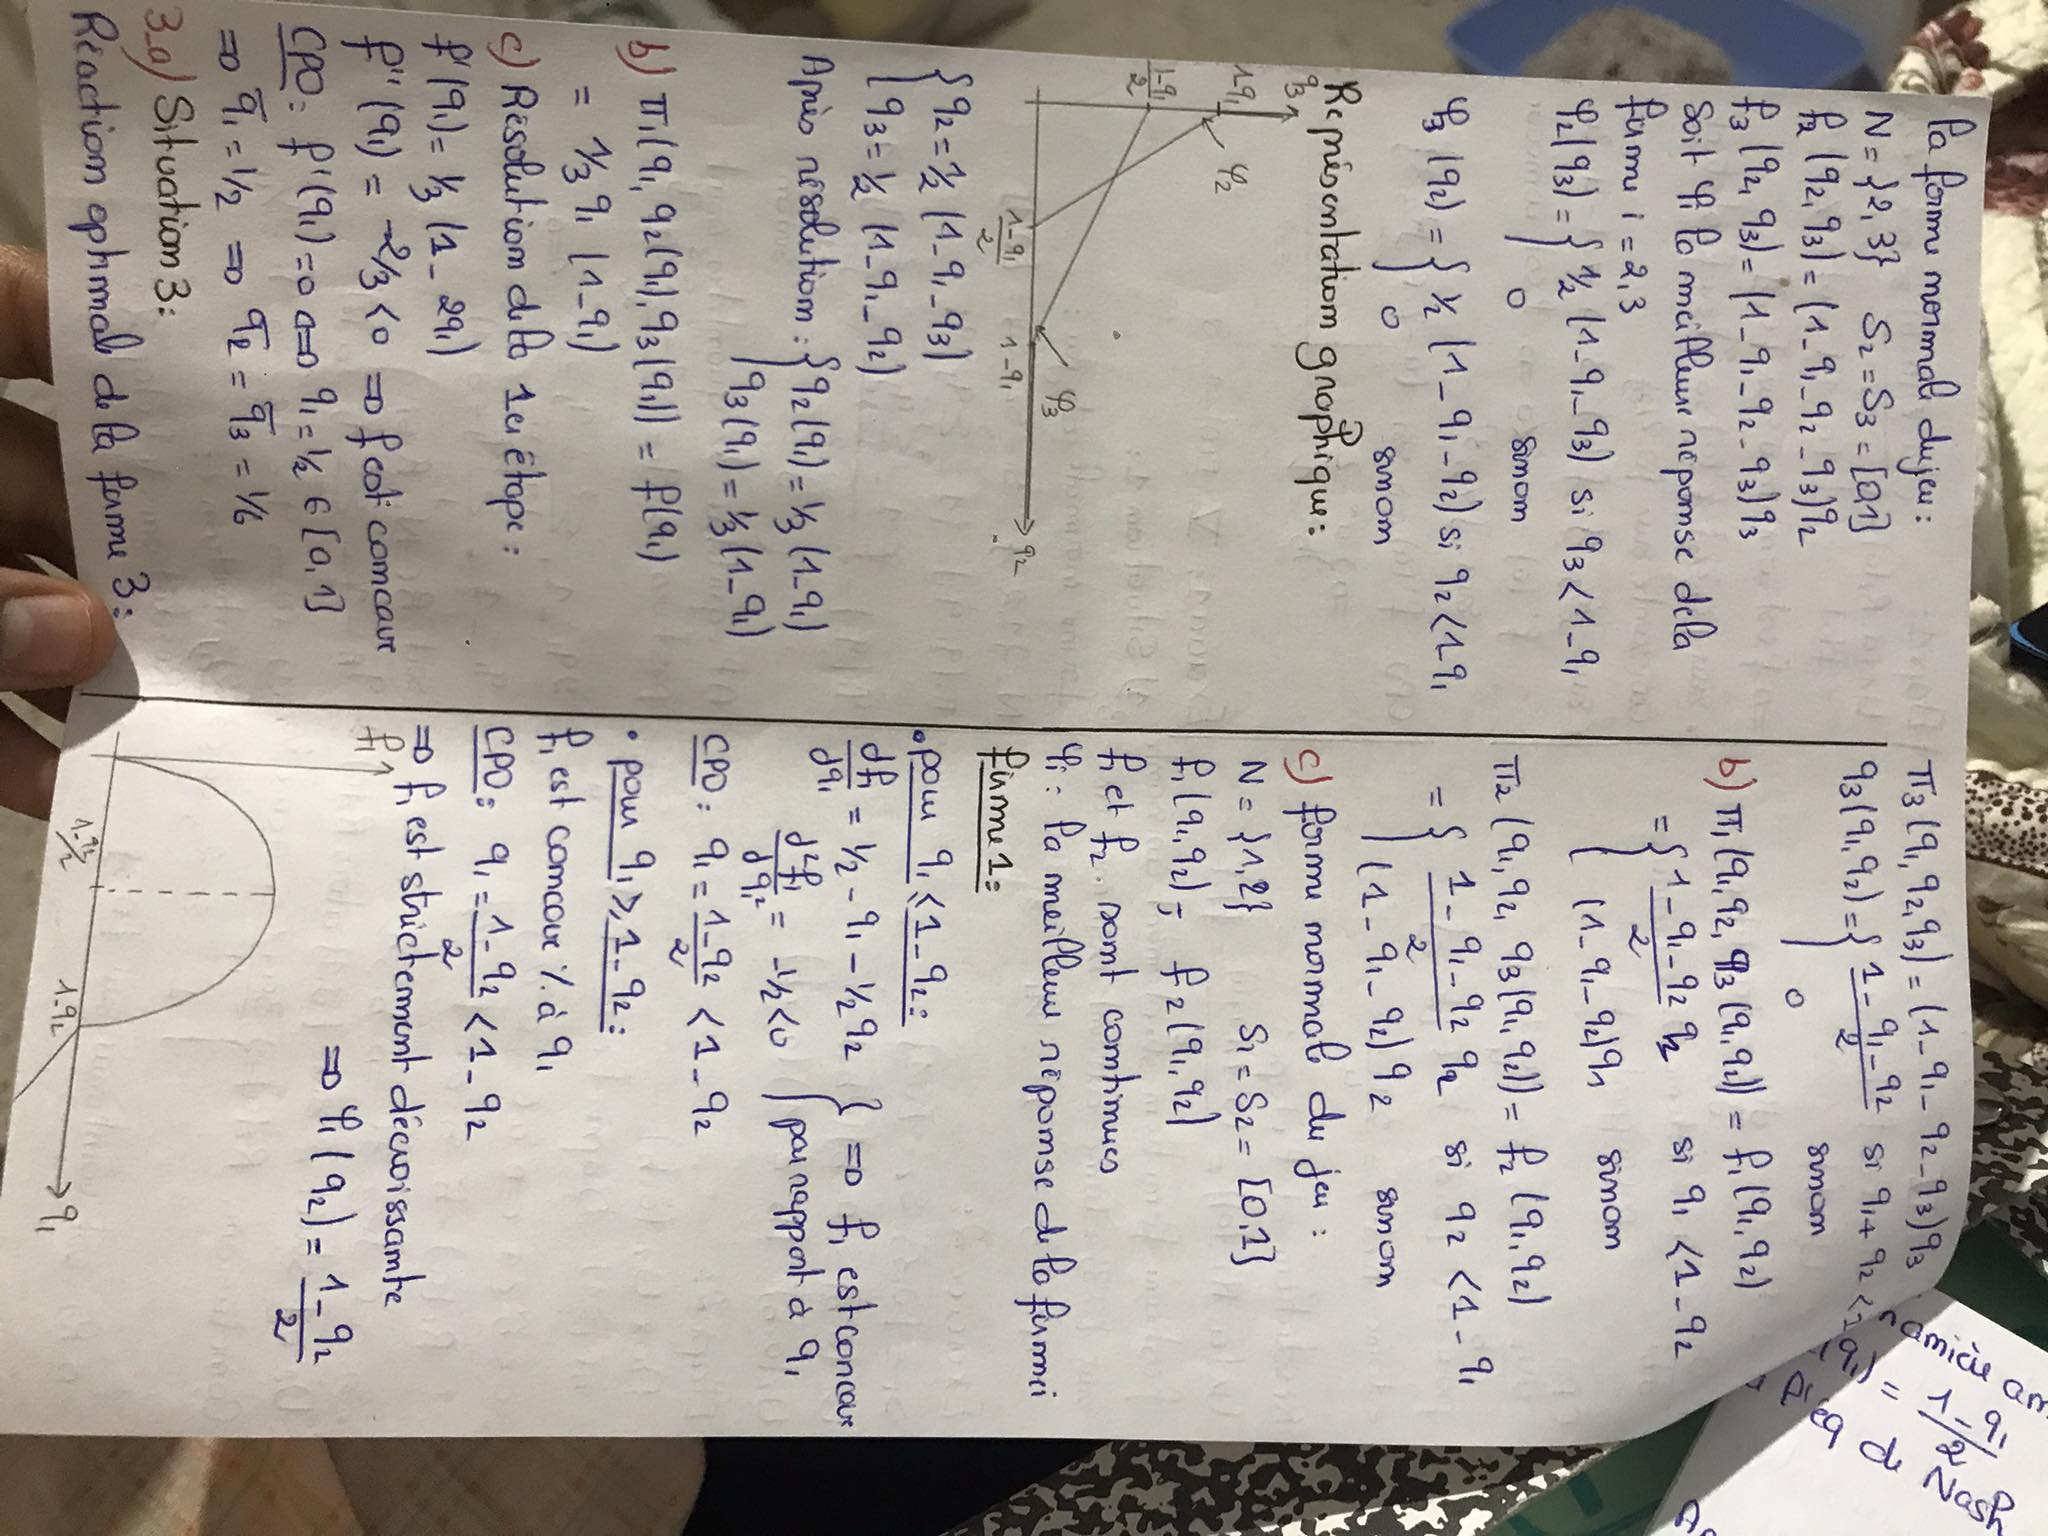 la forme normal du jeu :
N = {2, 3} S2 = S3 = [0,1]
f2 (q2, q3) = (1 - q1 - q2 - q3) q2
f3 (q2, q3) = (1 - q1 - q2 - q3) q3
Soit φi la meilleur réponse de la
firme i = 2, 3
φ2 (q3) = { 1/2 (1 - q1 - q3) si q3 < 1 - q1
0 sinon
φ3 (q2) = { 1/2 (1 - q1 - q2) si q2 < 1 - q1
0 sinon
Représentation graphique :
q3
1-q1
φ2
1-q1/2
1-q1/2
1-q1
φ3
q2
{ q2 = 1/2 (1 - q1 - q3)
q3 = 1/2 (1 - q1 - q2)
Après résolution : { q2 (q1) = 1/3 (1 - q1)
q3 (q1) = 1/3 (1 - q1)
b) π1 (q1, q2 (q1), q3 (q1)) = f(q1)
= 1/3 q1 (1 - q1)
c) Résolution de la 1er étape :
f'(q1) = 1/3 (1 - 2q1)
f''(q1) = -2/3 < 0 ⇒ f est concave
CPO : f'(q1) = 0 ⇔ q1 = 1/2 ∈ [0,1]
⇒ q̄1 = 1/2 ⇒ q̄2 = q̄3 = 1/6
3-a) Situation 3 :
Réaction optimal de la firme 3 :
π3 (q1, q2, q3) = (1 - q1 - q2 - q3) q3
q3 (q1, q2) = { 1 - q1 - q2/2 si q1 + q2 < 1
0 sinon
b) π1 (q1, q2, q3 (q1, q2)) = f1 (q1, q2)
= { 1 - q1 - q2/2 q1 si q1 < 1 - q2
(1 - q1 - q2) q1 sinon
π2 (q1, q2, q3 (q1, q2)) = f2 (q1, q2)
= { 1 - q1 - q2/2 q2 si q2 < 1 - q1
(1 - q1 - q2) q2 sinon
c) forme normal du jeu :
N = {1, 2} S1 = S2 = [0,1]
f1 (q1, q2) ; f2 (q1, q2)
f1 et f2 sont continues
φi : la meilleur réponse de la firme i
firme 1 :
• pour q1 < 1 - q2 :
df1/dq1 = 1/2 - q1 - 1/2 q2 } ⇒ f1 est concave
d²f1/dq1² = -1/2 < 0 par rapport à q1
CPO : q1 = 1 - q2/2 < 1 - q2
• pour q1 ≥ 1 - q2 :
f1 est concave % à q1
CPO : q1 = 1 - q2/2 < 1 - q2
⇒ f1 est strictement décroissante
f1
⇒ φ1 (q2) = 1 - q2/2
1-q2/2
1-q2
q1
(q1) = 1 - q1/2
éq de Nash